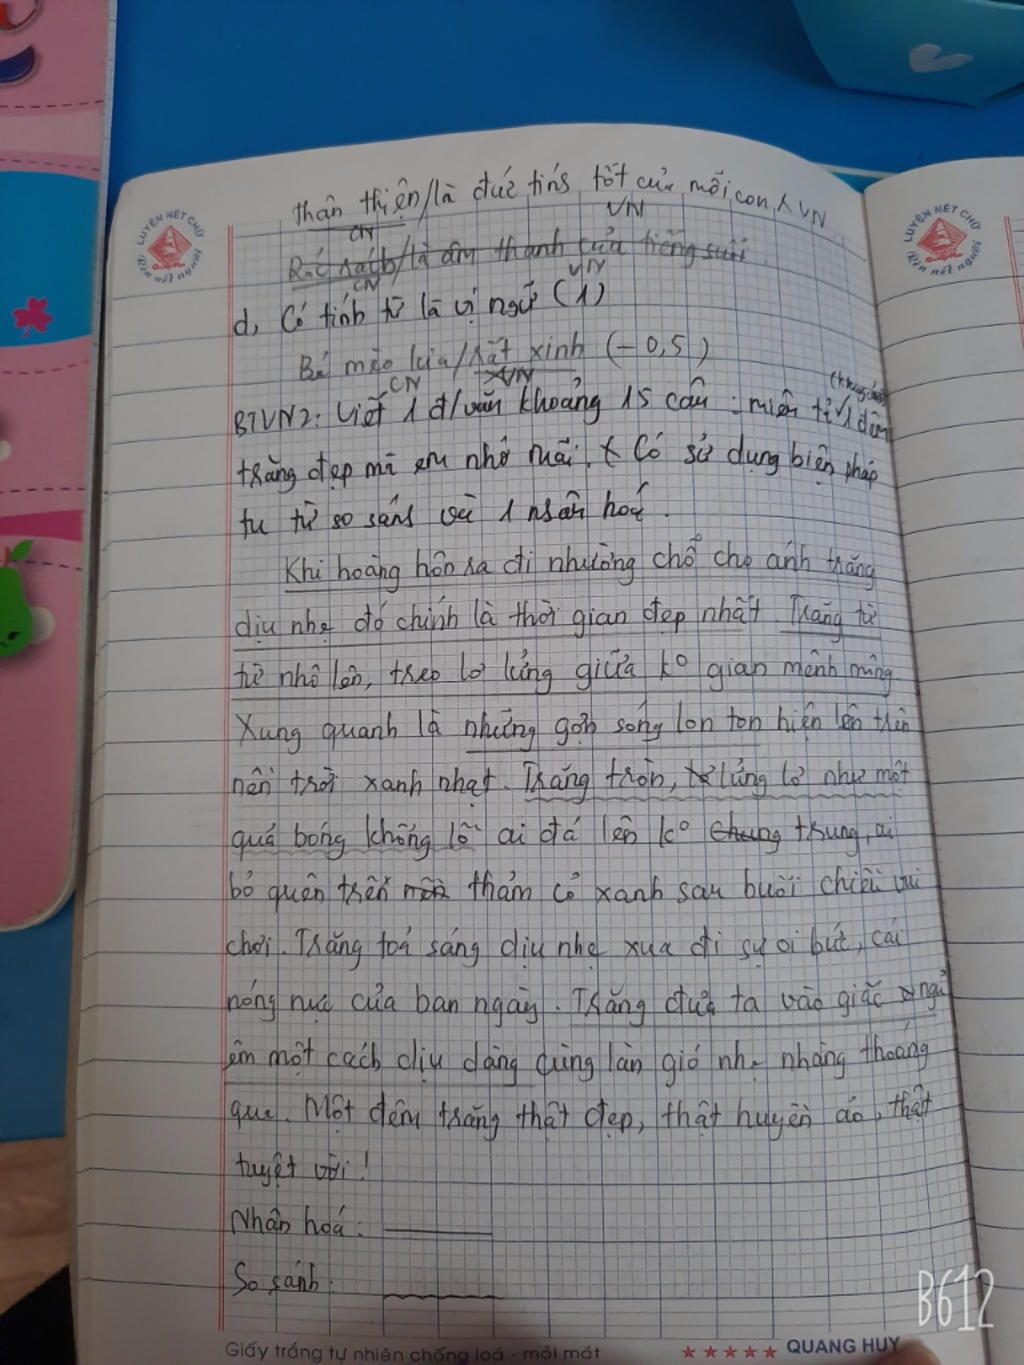 thân thiện/là đức tính tốt của mỗi con
CN VN
Róc rách/là âm thanh của tiếng suối
CN VN
d, Có tính từ là vị ngữ (1)
Bé mèo kia/rất xinh (-0,5)
CN VN
BTVN2: Viết 1 đ/văn khoảng 15 câu: miêu tả 1 đêm
trăng đẹp mà em nhớ mãi. Có sử dụng biện pháp
tu từ so sánh và 1 nhân hoá.
Khi hoàng hôn ra đi nhường chỗ cho ánh trăng
dịu nhẹ đó chính là thời gian đẹp nhất. Trăng từ
từ nhô lên, treo lơ lửng giữa ko gian mênh mông
Xung quanh là những gợn sóng lon ton hiện lên trên
nền trời xanh nhạt. Trăng tròn, lửng lơ như một
quả bóng khổng lồ ai đá lên ko chung trung, ai
bỏ quên trên thảm cỏ xanh sau buổi chiều vui
chơi. Trăng toả sáng dịu nhẹ xua đi sự oi bức, cái
nóng nực của ban ngày. Trăng đưa ta vào giấc ngủ
êm một cách dịu dàng cùng làn gió nhẹ nhàng thoáng
qua. Một đêm trăng thật đẹp, thật huyền ảo, thật
tuyệt vời!
Nhân hoá:
So sánh:
LUYỆN NÉT CHỮ
Rèn nết người
LUYỆN NÉT CHỮ
Rèn nết người
Giấy trắng tự nhiên chống loá - mỏi mắt ★★★★★ QUANG HUY
B612